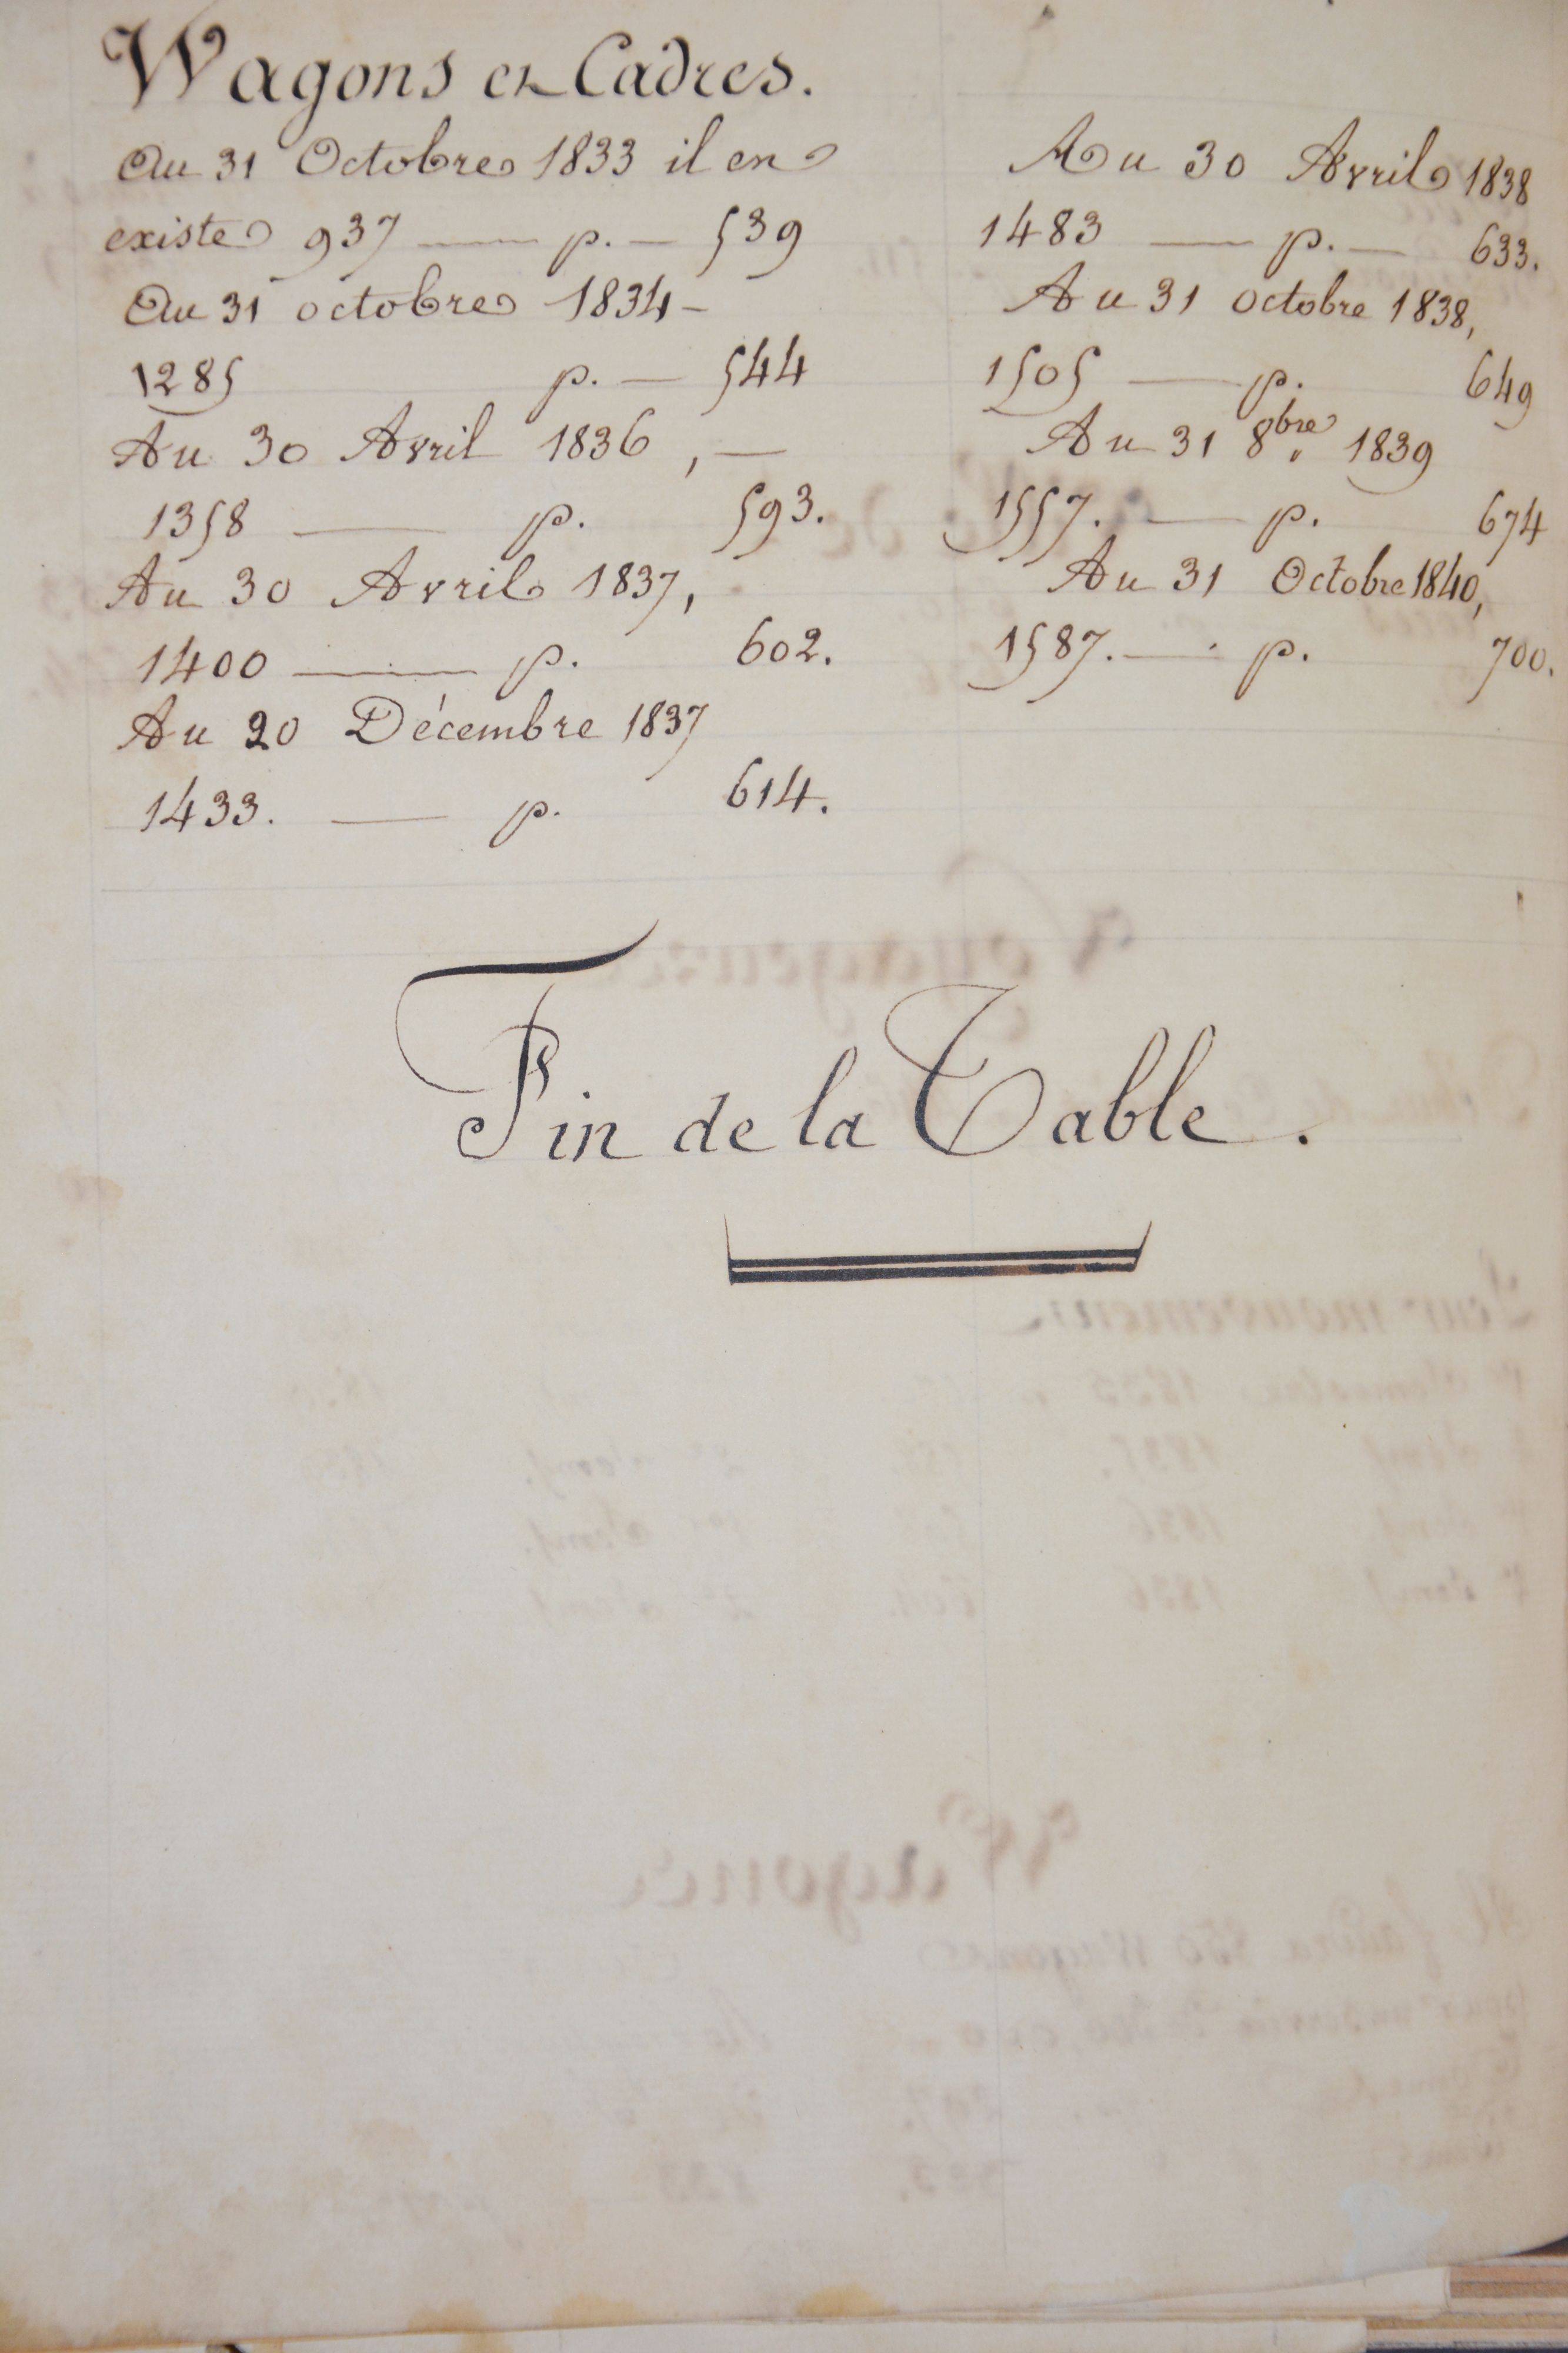 Wagons et Cadres.
Au 31 Octobre 1833 il en
existe 937 — p. — 539
Au 31 octobre 1834 —
1285 p. — 544
Au 30 Avril 1836, —
1358 — p. 593.
Au 30 Avril 1837,
1400 — p. 602.
Au 20 Décembre 1837
1433. — p. 614.
Au 30 Avril 1838
1483 — p. — 633.
Au 31 octobre 1838,
1505 — p. 649
Au 31 8bre 1839
1557. — p. 674
Au 31 Octobre 1840,
1587. — p. 700.
Fin de la Table.